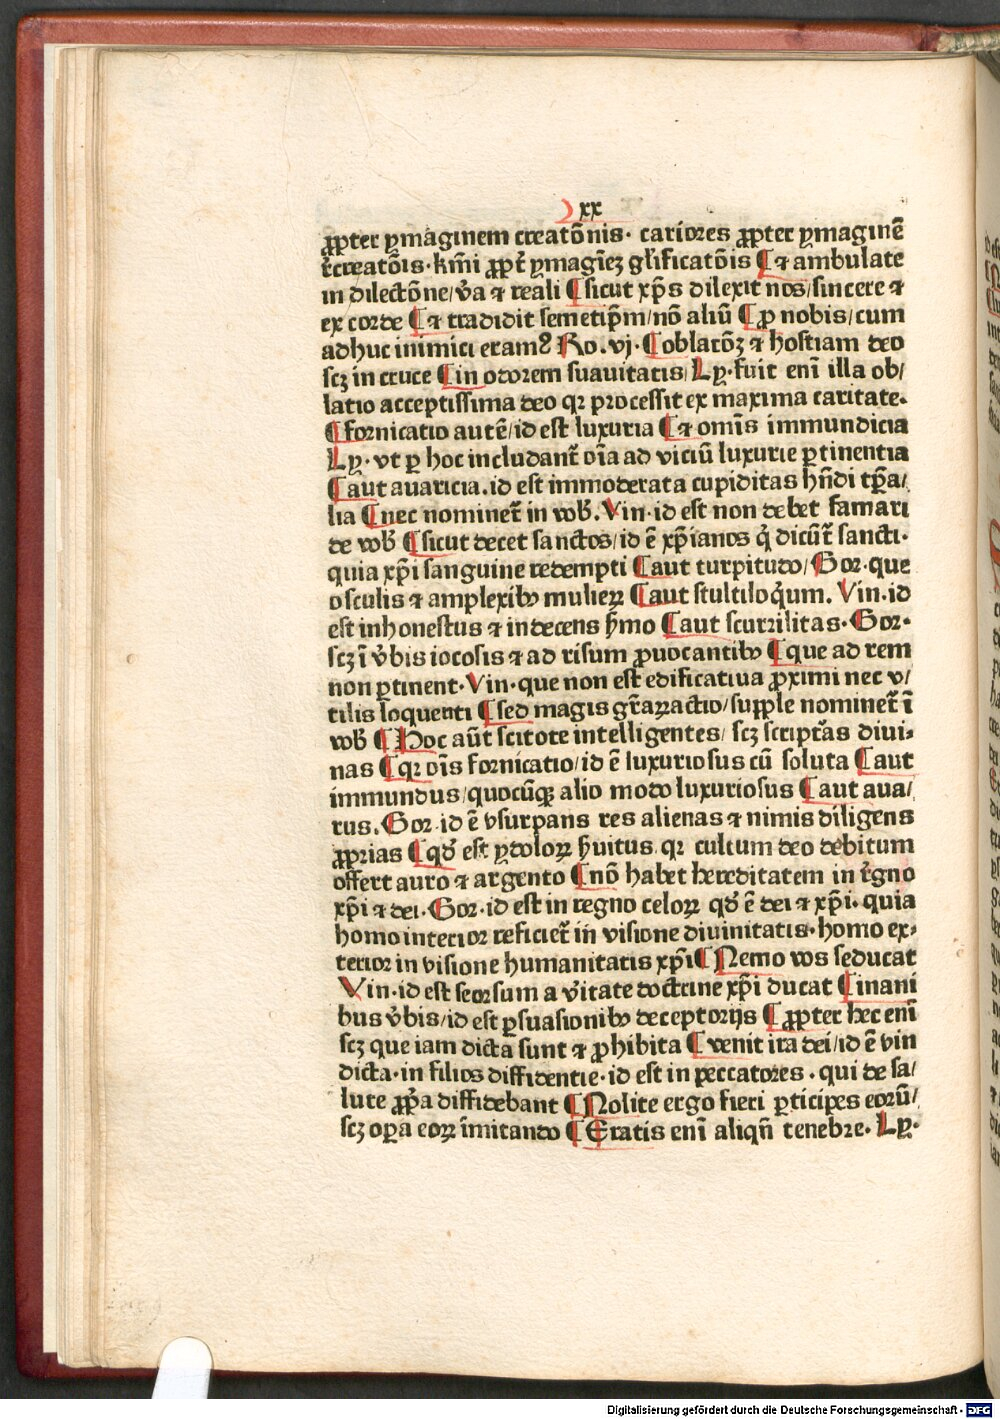 xx
ꝓpter ymaginem creatōnis· cariores ꝓpter ymaginē
r̄creatōis·km̄i ꝓpt̄ ymagīez gl̄ificatōis ¶ ⁊ ambulate
in dilectōne/v̄a ⁊ reali ¶ sicut xp̄s dilexit nos/sincere ⁊
ex corde ¶ ⁊ tradidit semetip̄m/nō aliū ¶ ꝓ nobis/cum
adhuc inimici eramꝰ Ro.vj· ¶ oblatōꝫ ⁊ hostiam deo
scꝫ in cruce ¶ in odorem suauitatis/Ly·fuit enī illa ob/
latio acceptissima deo qꝛ processit ex maxima caritate.
¶ fornicatio autē/id est luxuria ¶ ⁊ omīs immundicia
Ly·vt ꝑ hoc includant̄ oīa ad viciū luxurie ꝑtinentia
¶ aut auaricia.id est immoderata cupiditas hn̄di tꝑa/
lia ¶ nec nominet̄ in vob̄.Vin·id est non debet famari
de vob̄ ¶ sicut decet sanctos/id ē xp̄ianos q̇ dicūt̄ sancti·
quia xp̄i sanguine redempti ¶ aut turpitudo/Gor·que
osculis ⁊ amplexibꝰ mulieꝝ ¶ aut stultiloq̇um. Vin.id
est inhonestus ⁊ indecens s̄mo ¶ aut scurrilitas·Gor·
scꝫ ī v̄bis iocosis ⁊ ad risum ꝓuocantibꝰ ¶ que ad rem
non ꝑtinent·Vin·que non est edificatiua ꝓximi nec v/
tilis loquenti ¶ sed magis gr̄aꝝactio/supple nominet̄ ī
vob̄ ¶ Hoc aūt scitote intelligentes/ scꝫ scriptās diui⸗
nas ¶ qꝛ oīs fornicatio/id ē luxuriosus cū soluta ¶ aut
immundus/quocūqꝫ alio modo luxuriosus ¶ aut aua/
rus.Gor.id ē vsurpans res alienas ⁊ nimis diligens
ꝓprias ¶ qd̄ est ydoloꝝ s̄uitus qꝛ cultum deo debitum
offert auro ⁊ argento ¶ nō habet hereditatem in r̄gno
xp̄i ⁊ dei·Gor·id est in regno celoꝝ qd̄ ē dei ⁊ xp̄i. quia
homo interior reficiet̄ in visione diuinitatis·homo ex⸗
terior in visione humanitatis xp̄i ¶ Nemo vos seducat
Vin.id est seorsum a v̄itate doctrine xp̄i ducat ¶ inani
bus v̄bis/id est ꝑsuasionibꝰ deceptorijs ¶ ꝓpter hec enī
scꝫ que iam dicta sunt ⁊ ꝓhibita ¶ venit ira dei/id ē vin
dicta·in filios diffidentie·id est in peccatores·qui de sa/
lute ꝓp̄a diffidebant ¶ Nolite ergo fieri ꝑticipes eorū/
scꝫ oꝑa eoꝝ īmitando ¶ Eratis enī aliqn̄ tenebre. Ly·
Digitalisierung gefördert durch die Deutsche Forschungsgemeinschaft - DFG